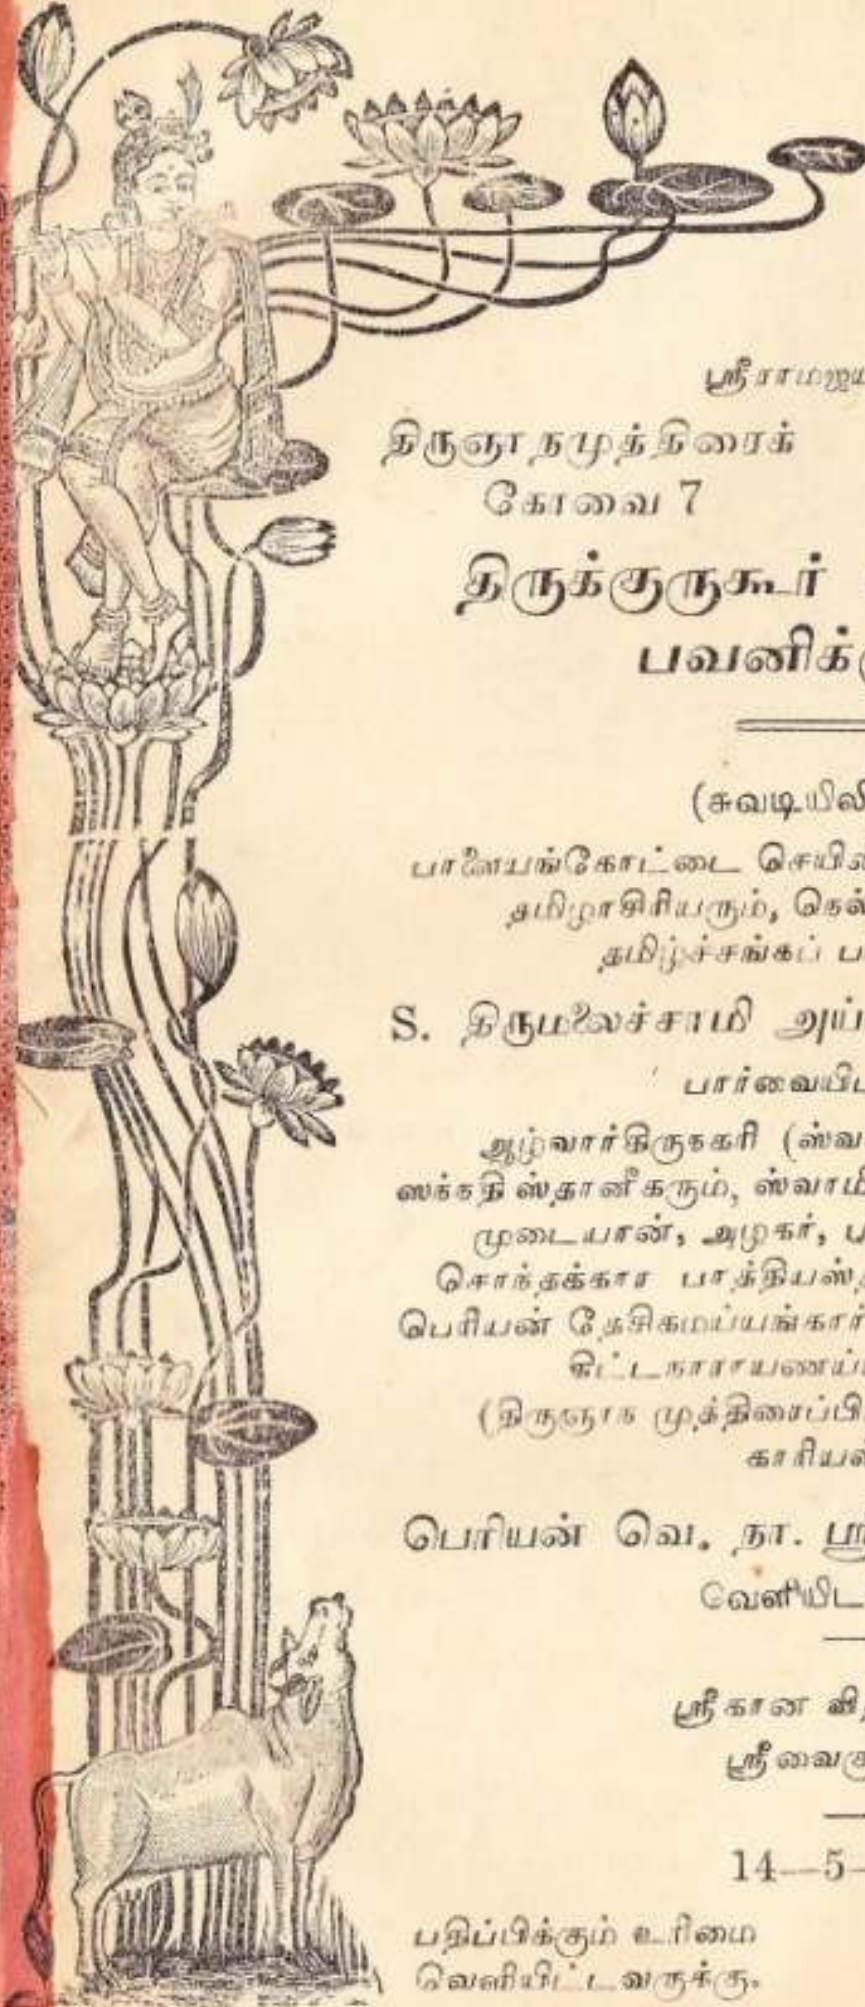 ஸ்ரீராமஜய
திருஞாநமுத்திரைக்
கோவை 7
திருக்குருகூர்
பவனிக்கு
(சுவடியிலி
பாளையங்கோட்டை செயின
தமிழாசிரியரும், நெல்
தமிழ்ச்சங்கப் ப
S. திருமலைச்சாமி அய்
பார்வையிட
ஆழ்வார்திருநகரி (ஸ்வ
ஸந்நதி ஸ்தானீகரும், ஸ்வாமி
முடையான், அழகர், பு
சொந்தக்கார பாத்தியஸ்த
பெரியன் தேசிகமய்யங்கார்
கிட்டநாராயணய்
(திருஞாந முத்திரைப்பி
காரியஸ
பெரியன் வெ. நா. ஸ்ரீ
வெளியிட
ஸ்ரீகான வி
ஸ்ரீவைகு
14—5—
பதிப்பிக்கும் உரிமை
வெளியிட்டவருக்கு.